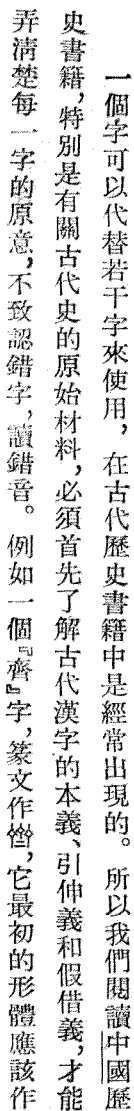 一個字可以代替若干字來使用，在古代歷史書籍中是經常出現的。所以我們閱讀中國歷
史書籍，特別是有關古代史的原始材料，必須首先了解古代漢字的本義、引伸義和假借義，才能
弄清楚每一字的原意，不致認錯字，讀錯音。例如一個『齊』字，篆文作，它最初的形體應該作